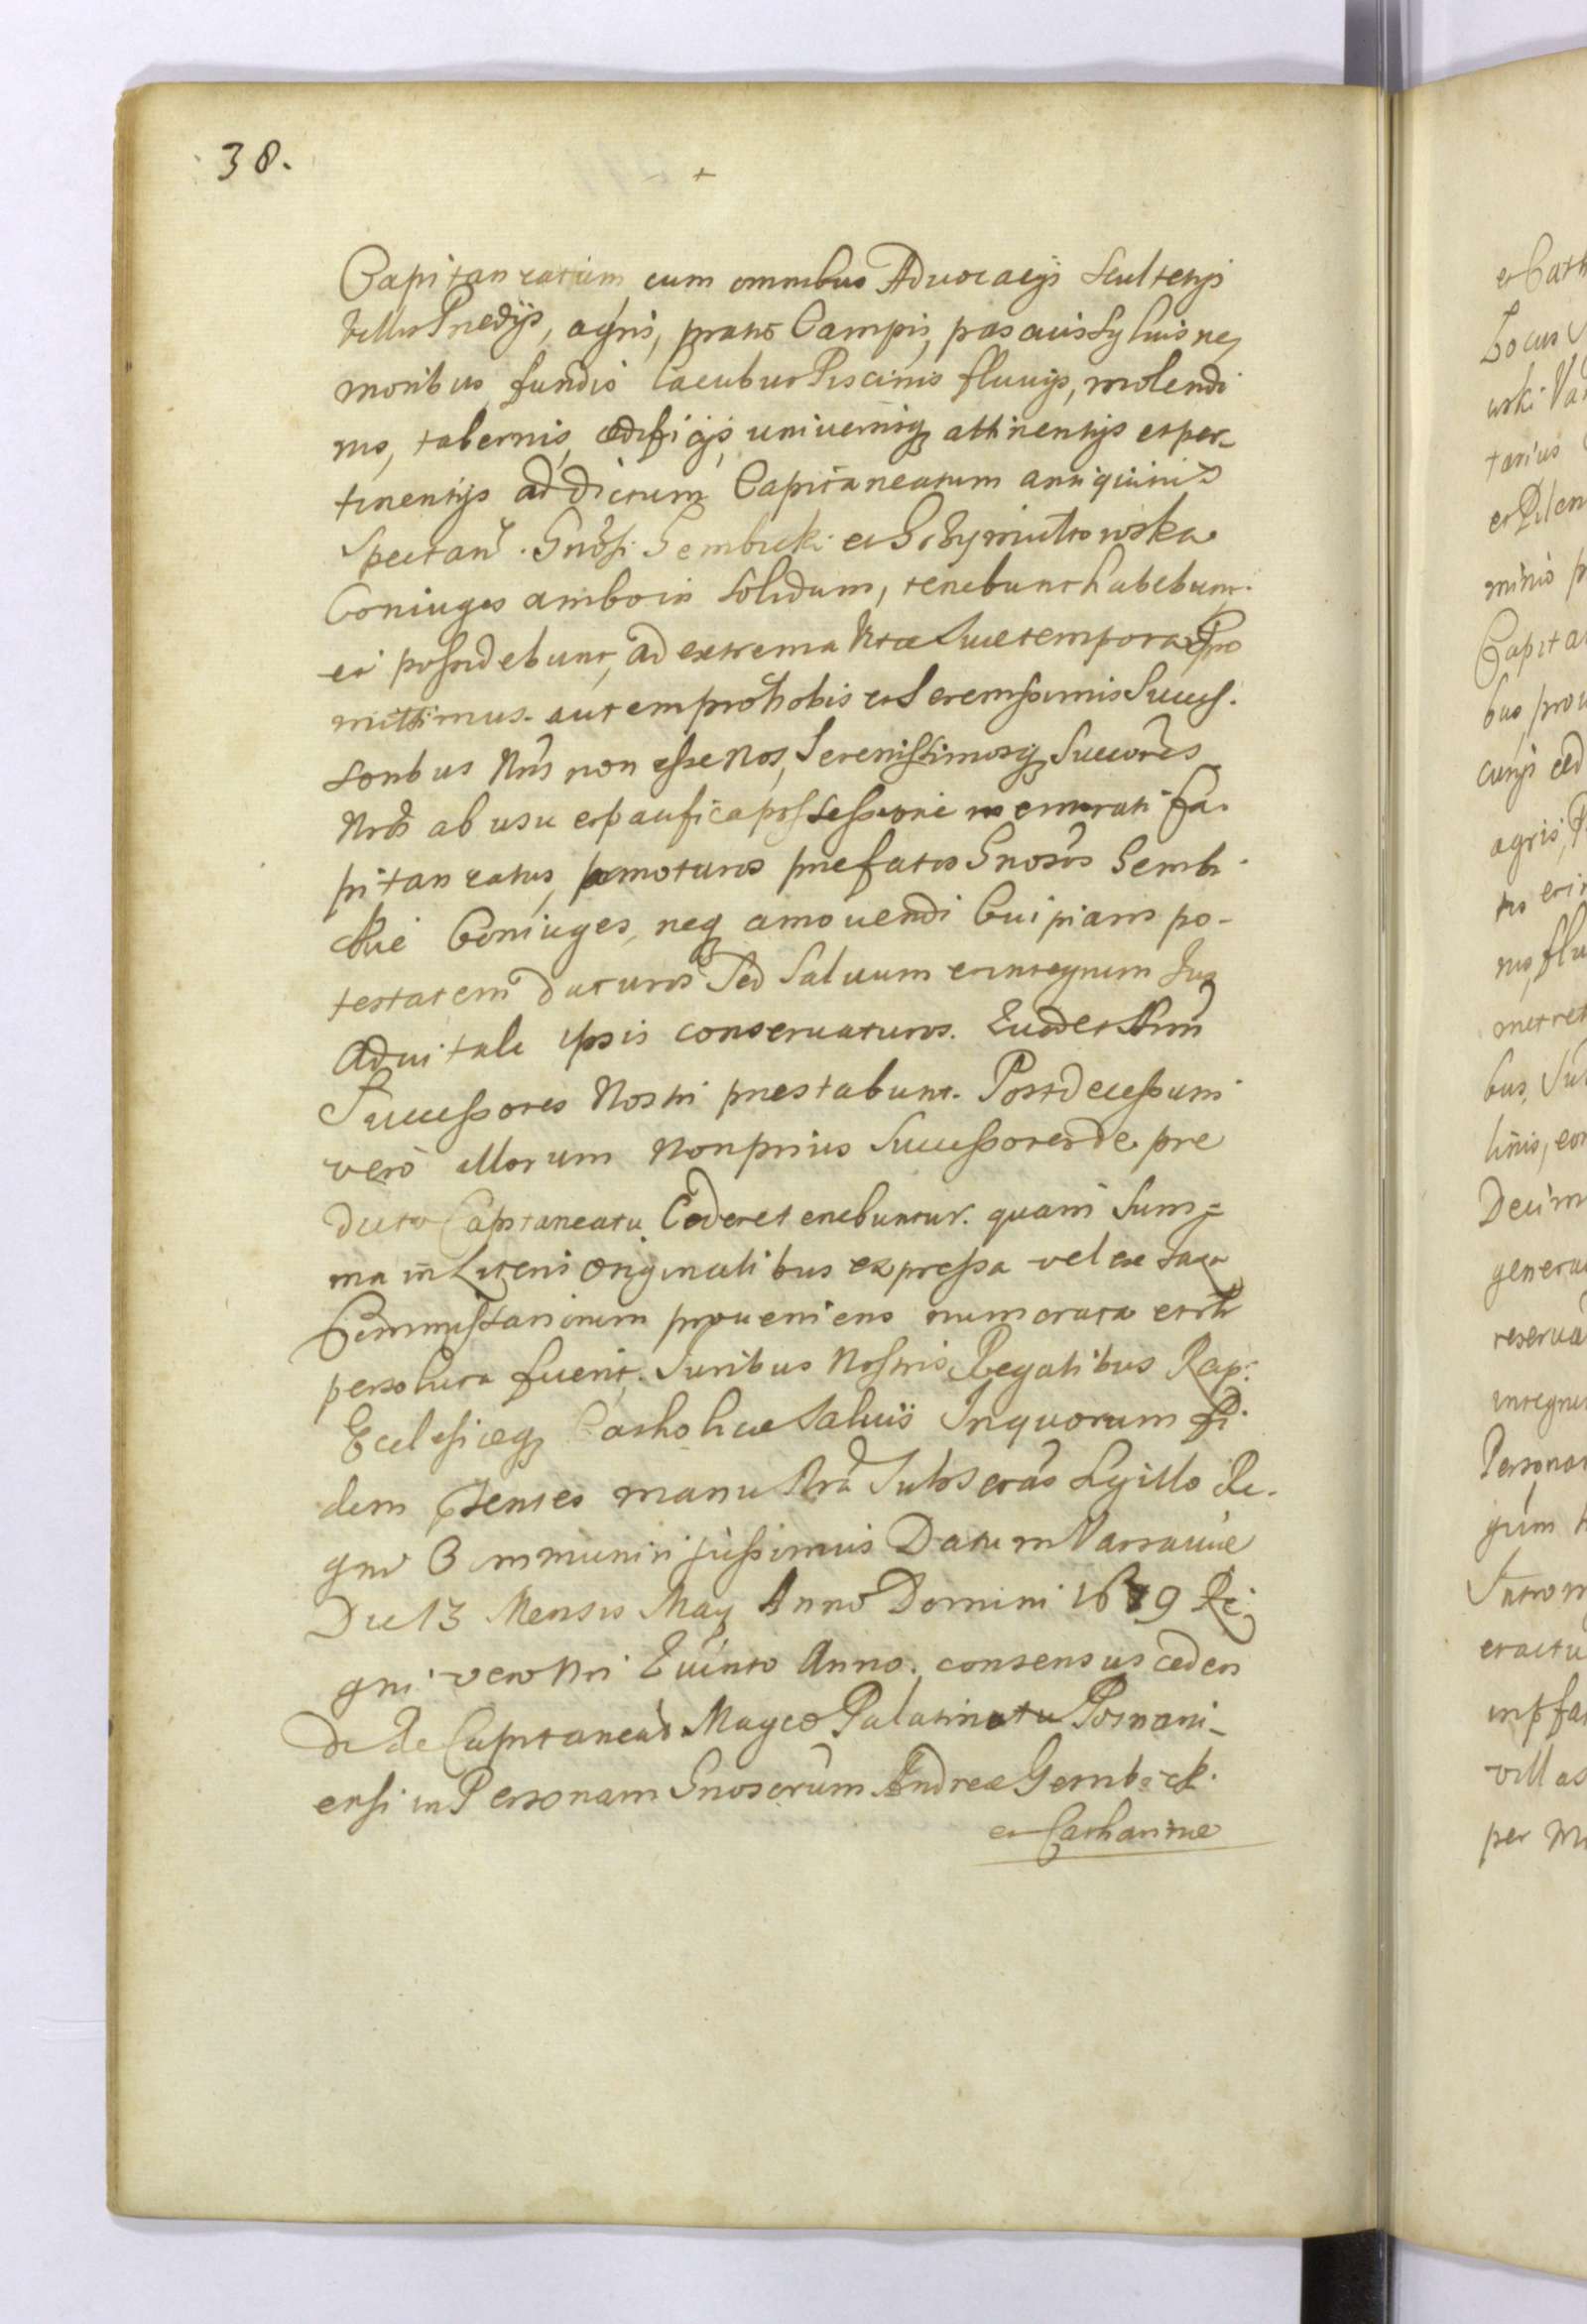 38.
Capitaneatum cum omnibus Aduocatijs Scultetijs
Villis Predijs, agris, pratis Campis, pascuis Syluis ne,
moribus, fundis Lacubus Piscinis fluuijs, molendi
nis, tabernis, ædificijs, uniuersisq attinentijs et per-
tinentijs ad dictum Capitaneatum antiquitus
Spectan. Gnosi Gembicki et Grzymultowska
Coniuges ambo in Solidum, tenebunt habebunt
et possidebunt, ad extrema Vitæ Suæ tempora Pro
mittimus. autem pro Nobis et Serenissimis Success.
soribus Nris non esse Nos, Serenissimosq Succores
Nros ab usu et pacifica possessione memorati Ca.
pitaneatus, amoturos prefatos Gnosos Gembi
ckie Coniuges, neq amouendi Cuipiam po-
testatem daturos Sed Saluum et integrum Jus
Aduitale ipsis conseruaturos. Quod et Smi
Successores Nostri prestabunt. Post decessum
vero illorum Non prius Successores de pre
dicto Capitaneatu Cedere tenebuntur. quam Sum=
ma in Literis Originalibus expressa vel ex taxa
Commissariorum proueniens numerata et
persoluta fuerit. Juribus Nostris Regalibus Reip:
Eclesiæq Catholicæ Saluis In quorum fi
dem ptentes manu Nra Subscrās Sigillo Re.
gni Communiri jussimus Datum Varsauiæ
Die 13 Mensis Maij Anno Domini 1679 Re
gni vero Nri Quinto Anno. consensus ceden
di de Capitaneatu Palatinatu Posnani-
ensi in Personam Gnosorum Andreæ Gembicki
et Catharinæ